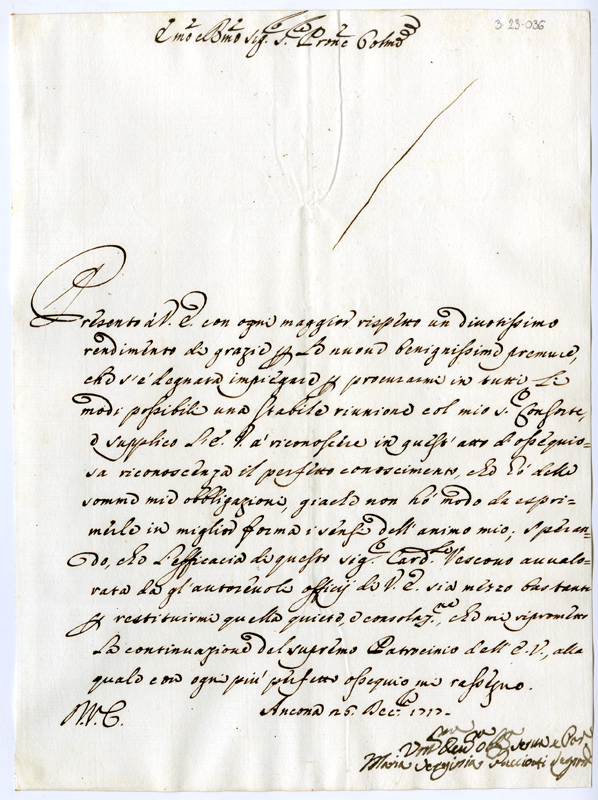 3-23-036
E.mo e R.mo Sig.r S.r P.rone Colmo
Presento à V. E. con ogni maggior rispetto un divotissimo
rendimento di grazie per le nuove benignissime premure,
che s'è degnata impiegare per procurarmi in tutti li
modi possibile una stabile riunione col mio S.r Consorte,
e supplico l'E. V. a' riconoscere in quest'atto d'ossequio=
sa riconoscenza il perfetto conoscimento, che hò delle
somme mie obbligazione, giache non hò modo da espri=
merle in miglior forma i sensi dell'animo mio; Speran=
do, che l'efficacia di questo sig.r Card.l Vescovo avvalo=
rata da gl'autorevole officij di V. E. sia mezzo bastante
per restituirmi quella quiete, e consolaz.ne, che mi riprometto
La continuazione del supremo Patrocinio dell'E. V., alla
quale con ogni più perfetto ossequio mi rassegno.
Ancona 26 Dec.re 1717.
Serva e
Maria